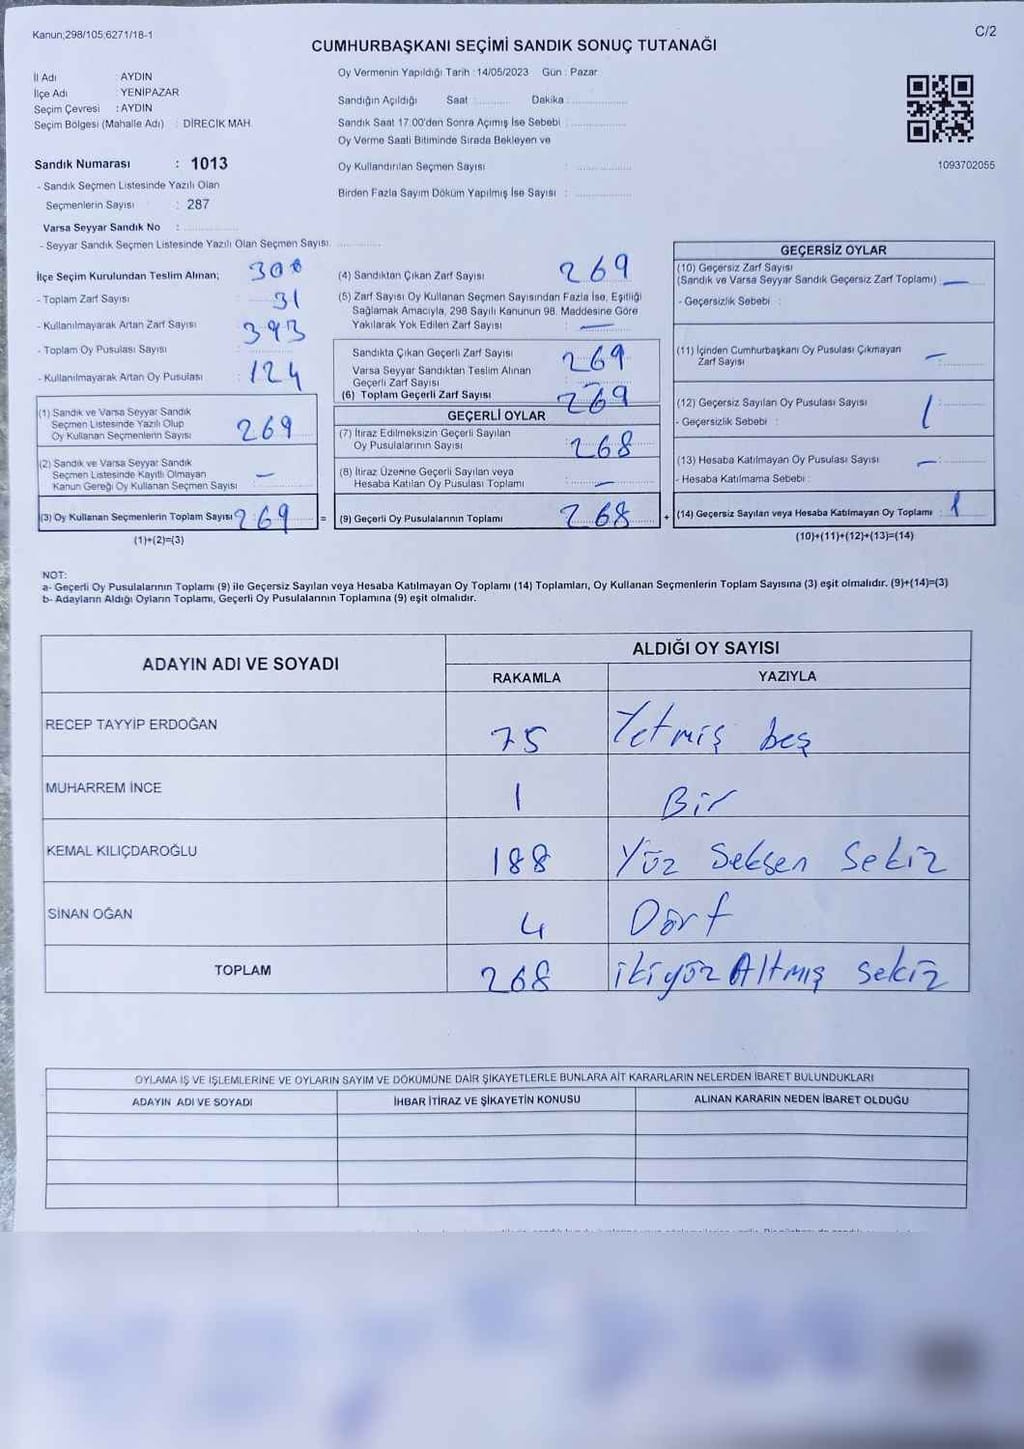 Kanun;298/105;6271/18-1
C/2
CUMHURBAŞKANI SEÇİMİ SANDIK SONUÇ TUTANAĞI
İl Adı : AYDIN
İlçe Adı : YENİPAZAR
Seçim Çevresi : AYDIN
Seçim Bölgesi (Mahalle Adı) : DİRECİK MAH.
Sandık Numarası : 1013
- Sandık Seçmen Listesinde Yazılı Olan
Seçmenlerin Sayısı : 287
Varsa Seyyar Sandık No :
- Seyyar Sandık Seçmen Listesinde Yazılı Olan Seçmen Sayısı
Oy Vermenin Yapıldığı Tarih : 14/05/2023 Gün : Pazar
Sandığın Açıldığı Saat Dakika
Sandık Saat 17.00'den Sonra Açımış İse Sebebi :
Oy Verme Saati Bitiminde Sırada Bekleyen ve
Oy Kullandırılan Seçmen Sayısı :
Birden Fazla Sayım Döküm Yapılmış İse Sayısı :
1093702055
İlçe Seçim Kurulundan Teslim Alınan;
- Toplam Zarf Sayısı 300
- Kullanılmayarak Artan Zarf Sayısı 31
- Toplam Oy Pusulası Sayısı 393
- Kullanılmayarak Artan Oy Pusulası 124
(1) Sandık ve Varsa Seyyar Sandık
Seçmen Listesinde Yazılı Olup
Oy Kullanan Seçmenlerin Sayısı 269
(2) Sandık ve Varsa Seyyar Sandık
Seçmen Listesinde Kayıtlı Olmayan
Kanun Gereği Oy Kullanan Seçmen Sayısı —
(3) Oy Kullanan Seçmenlerin Toplam Sayısı 269
(1)+(2)=(3)
(4) Sandıktan Çıkan Zarf Sayısı 269
(5) Zarf Sayısı Oy Kullanan Seçmen Sayısından Fazla İse, Eşitliği
Sağlamak Amacıyla, 298 Sayılı Kanunun 98. Maddesine Göre
Yakılarak Yok Edilen Zarf Sayısı : —
Sandıkta Çıkan Geçerli Zarf Sayısı 269
Varsa Seyyar Sandıktan Teslim Alınan
Geçerli Zarf Sayısı
(6) Toplam Geçerli Zarf Sayısı 269
GEÇERLİ OYLAR
(7) İtiraz Edilmeksizin Geçerli Sayılan
Oy Pusulalarının Sayısı 268
(8) İtiraz Üzerine Geçerli Sayılan veya
Hesaba Katılan Oy Pusulası Toplamı —
= (9) Geçerli Oy Pusulalarının Toplamı 268
GEÇERSİZ OYLAR
(10) Geçersiz Zarf Sayısı
(Sandık ve Varsa Seyyar Sandık Geçersiz Zarf Toplamı) : —
- Geçersizlik Sebebi :
(11) İçinden Cumhurbaşkanı Oy Pusulası Çıkmayan
Zarf Sayısı —
(12) Geçersiz Sayılan Oy Pusulası Sayısı 1
- Geçersizlik Sebebi :
(13) Hesaba Katılmayan Oy Pusulası Sayısı —
- Hesaba Katılmama Sebebi :
+ (14) Geçersiz Sayılan veya Hesaba Katılmayan Oy Toplamı : 1
(10)+(11)+(12)+(13)=(14)
NOT:
a- Geçerli Oy Pusulalarının Toplamı (9) ile Geçersiz Sayılan veya Hesaba Katılmayan Oy Toplamı (14) Toplamları, Oy Kullanan Seçmenlerin Toplam Sayısına (3) eşit olmalıdır. (9)+(14)=(3)
b- Adayların Aldığı Oyların Toplamı, Geçerli Oy Pusulalarının Toplamına (9) eşit olmalıdır.
ADAYIN ADI VE SOYADI ALDIĞI OY SAYISI
RAKAMLA YAZIYLA
RECEP TAYYİP ERDOĞAN 75 Yetmiş beş
MUHARREM İNCE 1 Bir
KEMAL KILIÇDAROĞLU 188 Yüz Seksen Sekiz
SİNAN OĞAN 4 Dört
TOPLAM 268 ikiyüz Altmış Sekiz
OYLAMA İŞ VE İŞLEMLERİNE VE OYLARIN SAYIM VE DÖKÜMÜNE DAİR ŞİKAYETLERLE BUNLARA AİT KARARLARIN NELERDEN İBARET BULUNDUKLARI
ADAYIN ADI VE SOYADI İHBAR İTİRAZ VE ŞİKAYETİN KONUSU ALINAN KARARIN NEDEN İBARET OLDUĞU